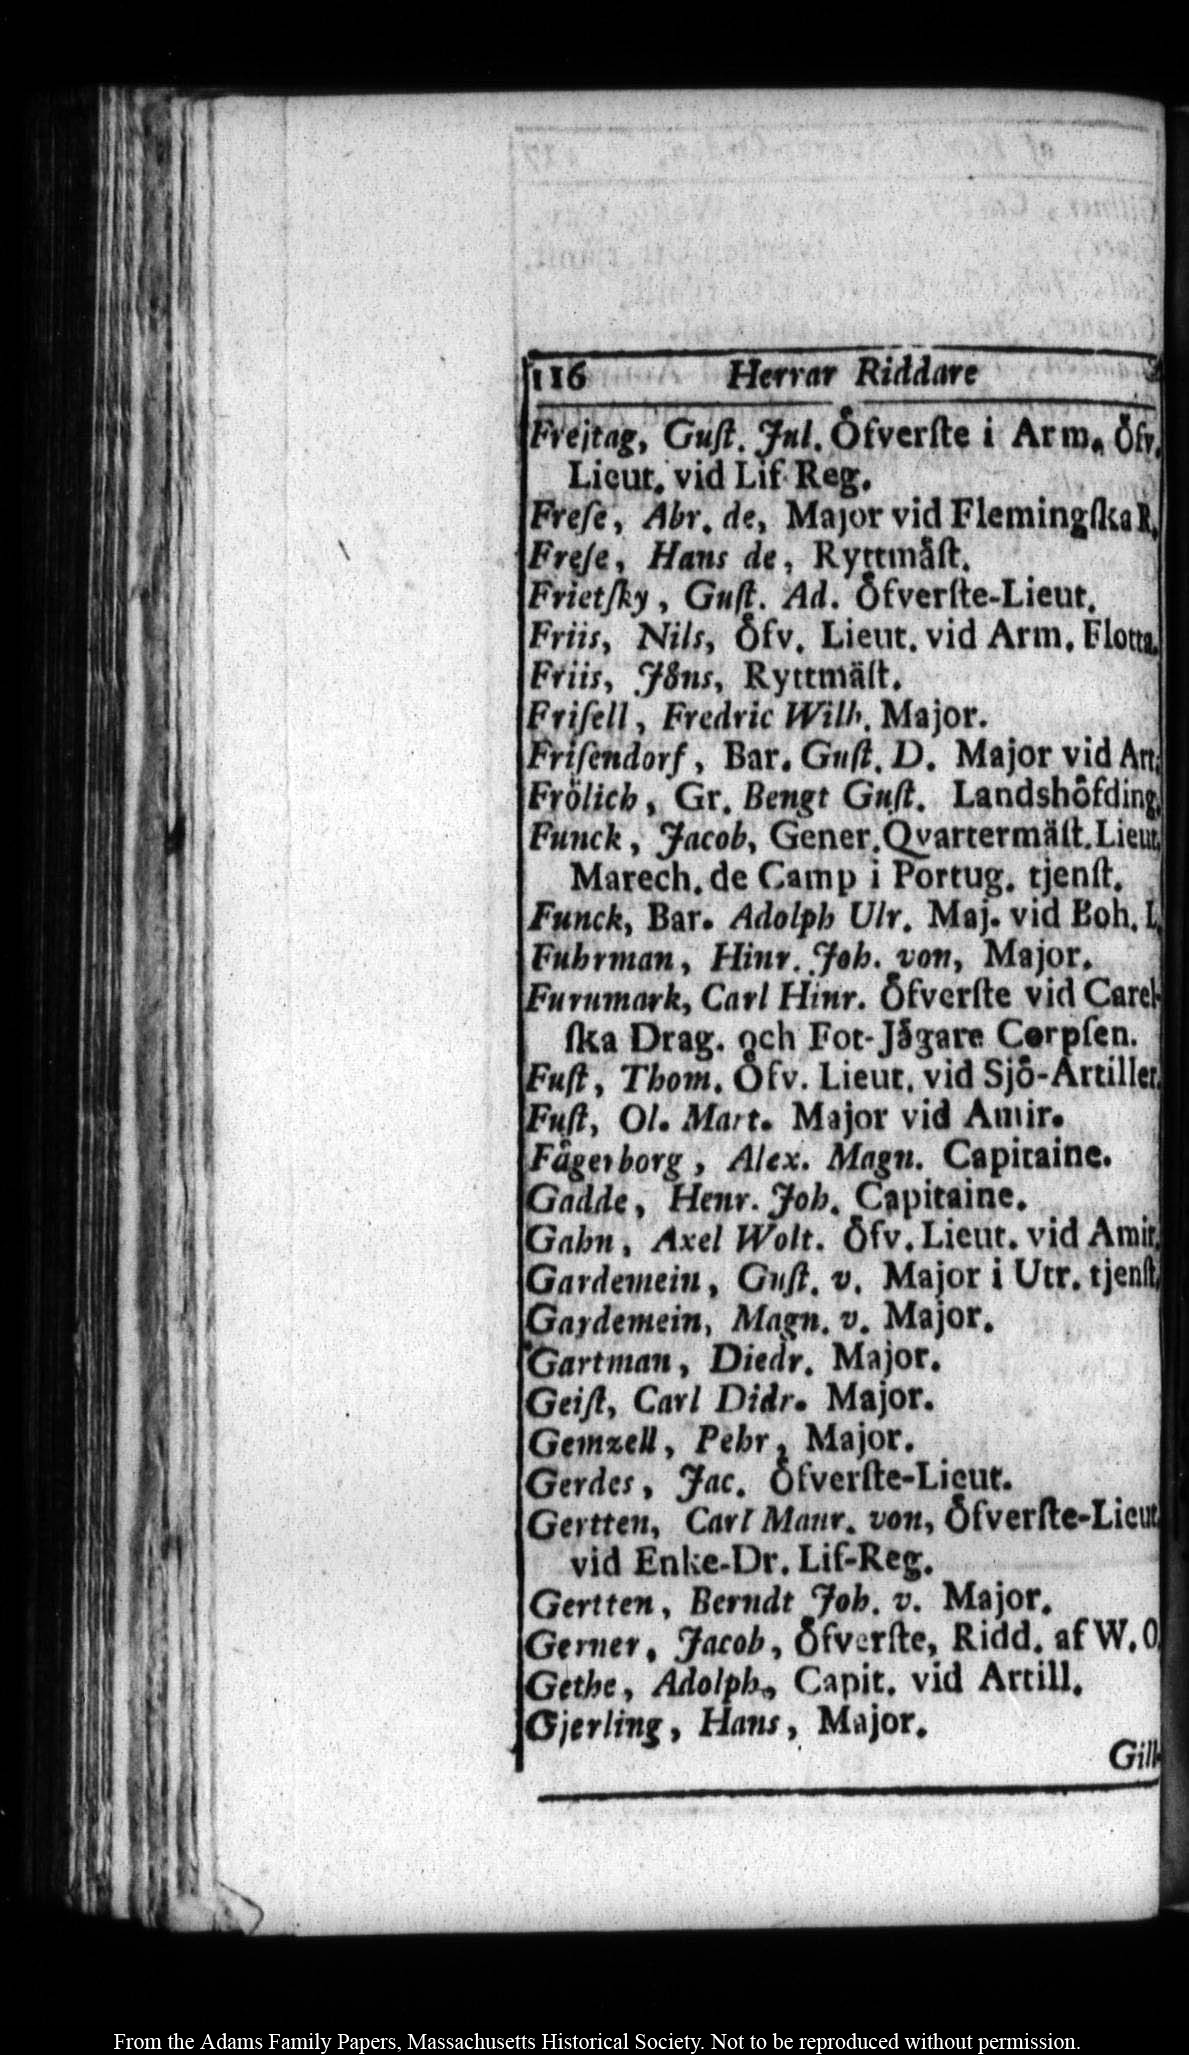 116 Herrar Riddare
Frejtag, Guſt. Jul. Öfverſte i Arm. Öfv.
Lieut. vid Lif Reg.
Freſe, Abr. de, Major vid Flemingſka R.
Freſe, Hans de, Ryttmåſt.
Frietſky, Guſt. Ad. Öfverſte-Lieut.
Friis, Nils, Öfv. Lieut. vid Arm. Flotta.
Friis, Jöns, Ryttmäſt.
Friſell, Fredric Wilh. Major.
Friſendorf, Bar. Guſt. D. Major vid Art.
Frölich, Gr. Bengt Guſt. Landshöfding.
Funck, Jacob, Gener. Qvartermäſt. Lieut.
Marech. de Camp i Portug. tjenſt.
Funck, Bar. Adolph Ulr. Maj. vid Boh. L.
Fuhrman, Hinr. Joh. von, Major.
Furumark, Carl Hinr. Öfverſte vid Carel-
ſka Drag. och Fot-Jågare Corpſen.
Fuſt, Thom. Öfv. Lieut. vid Sjö-Artiller.
Fuſt, Ol. Mart. Major vid Amir.
Fågerborg, Alex. Magn. Capitaine.
Gadde, Henr. Joh. Capitaine.
Gahn, Axel Wolt. Öfv. Lieut. vid Amir.
Gardemein, Guſt. v. Major i Utr. tjenſt.
Gardemein, Magn. v. Major.
Gartman, Diedr. Major.
Geiſt, Carl Didr. Major.
Gemzell, Pehr, Major.
Gerdes, Jac. Öfverſte-Lieut.
Gertten, Carl Maur. von, Öfverſte-Lieut.
vid Enke-Dr. Lif-Reg.
Gertten, Berndt Joh. v. Major.
Gerner, Jacob, Öfverſte, Ridd. af W. O.
Gethe, Adolph, Capit. vid Artill.
Gjerling, Hans, Major.
Gill-
From the Adams Family Papers, Massachusetts Historical Society. Not to be reproduced without permission.